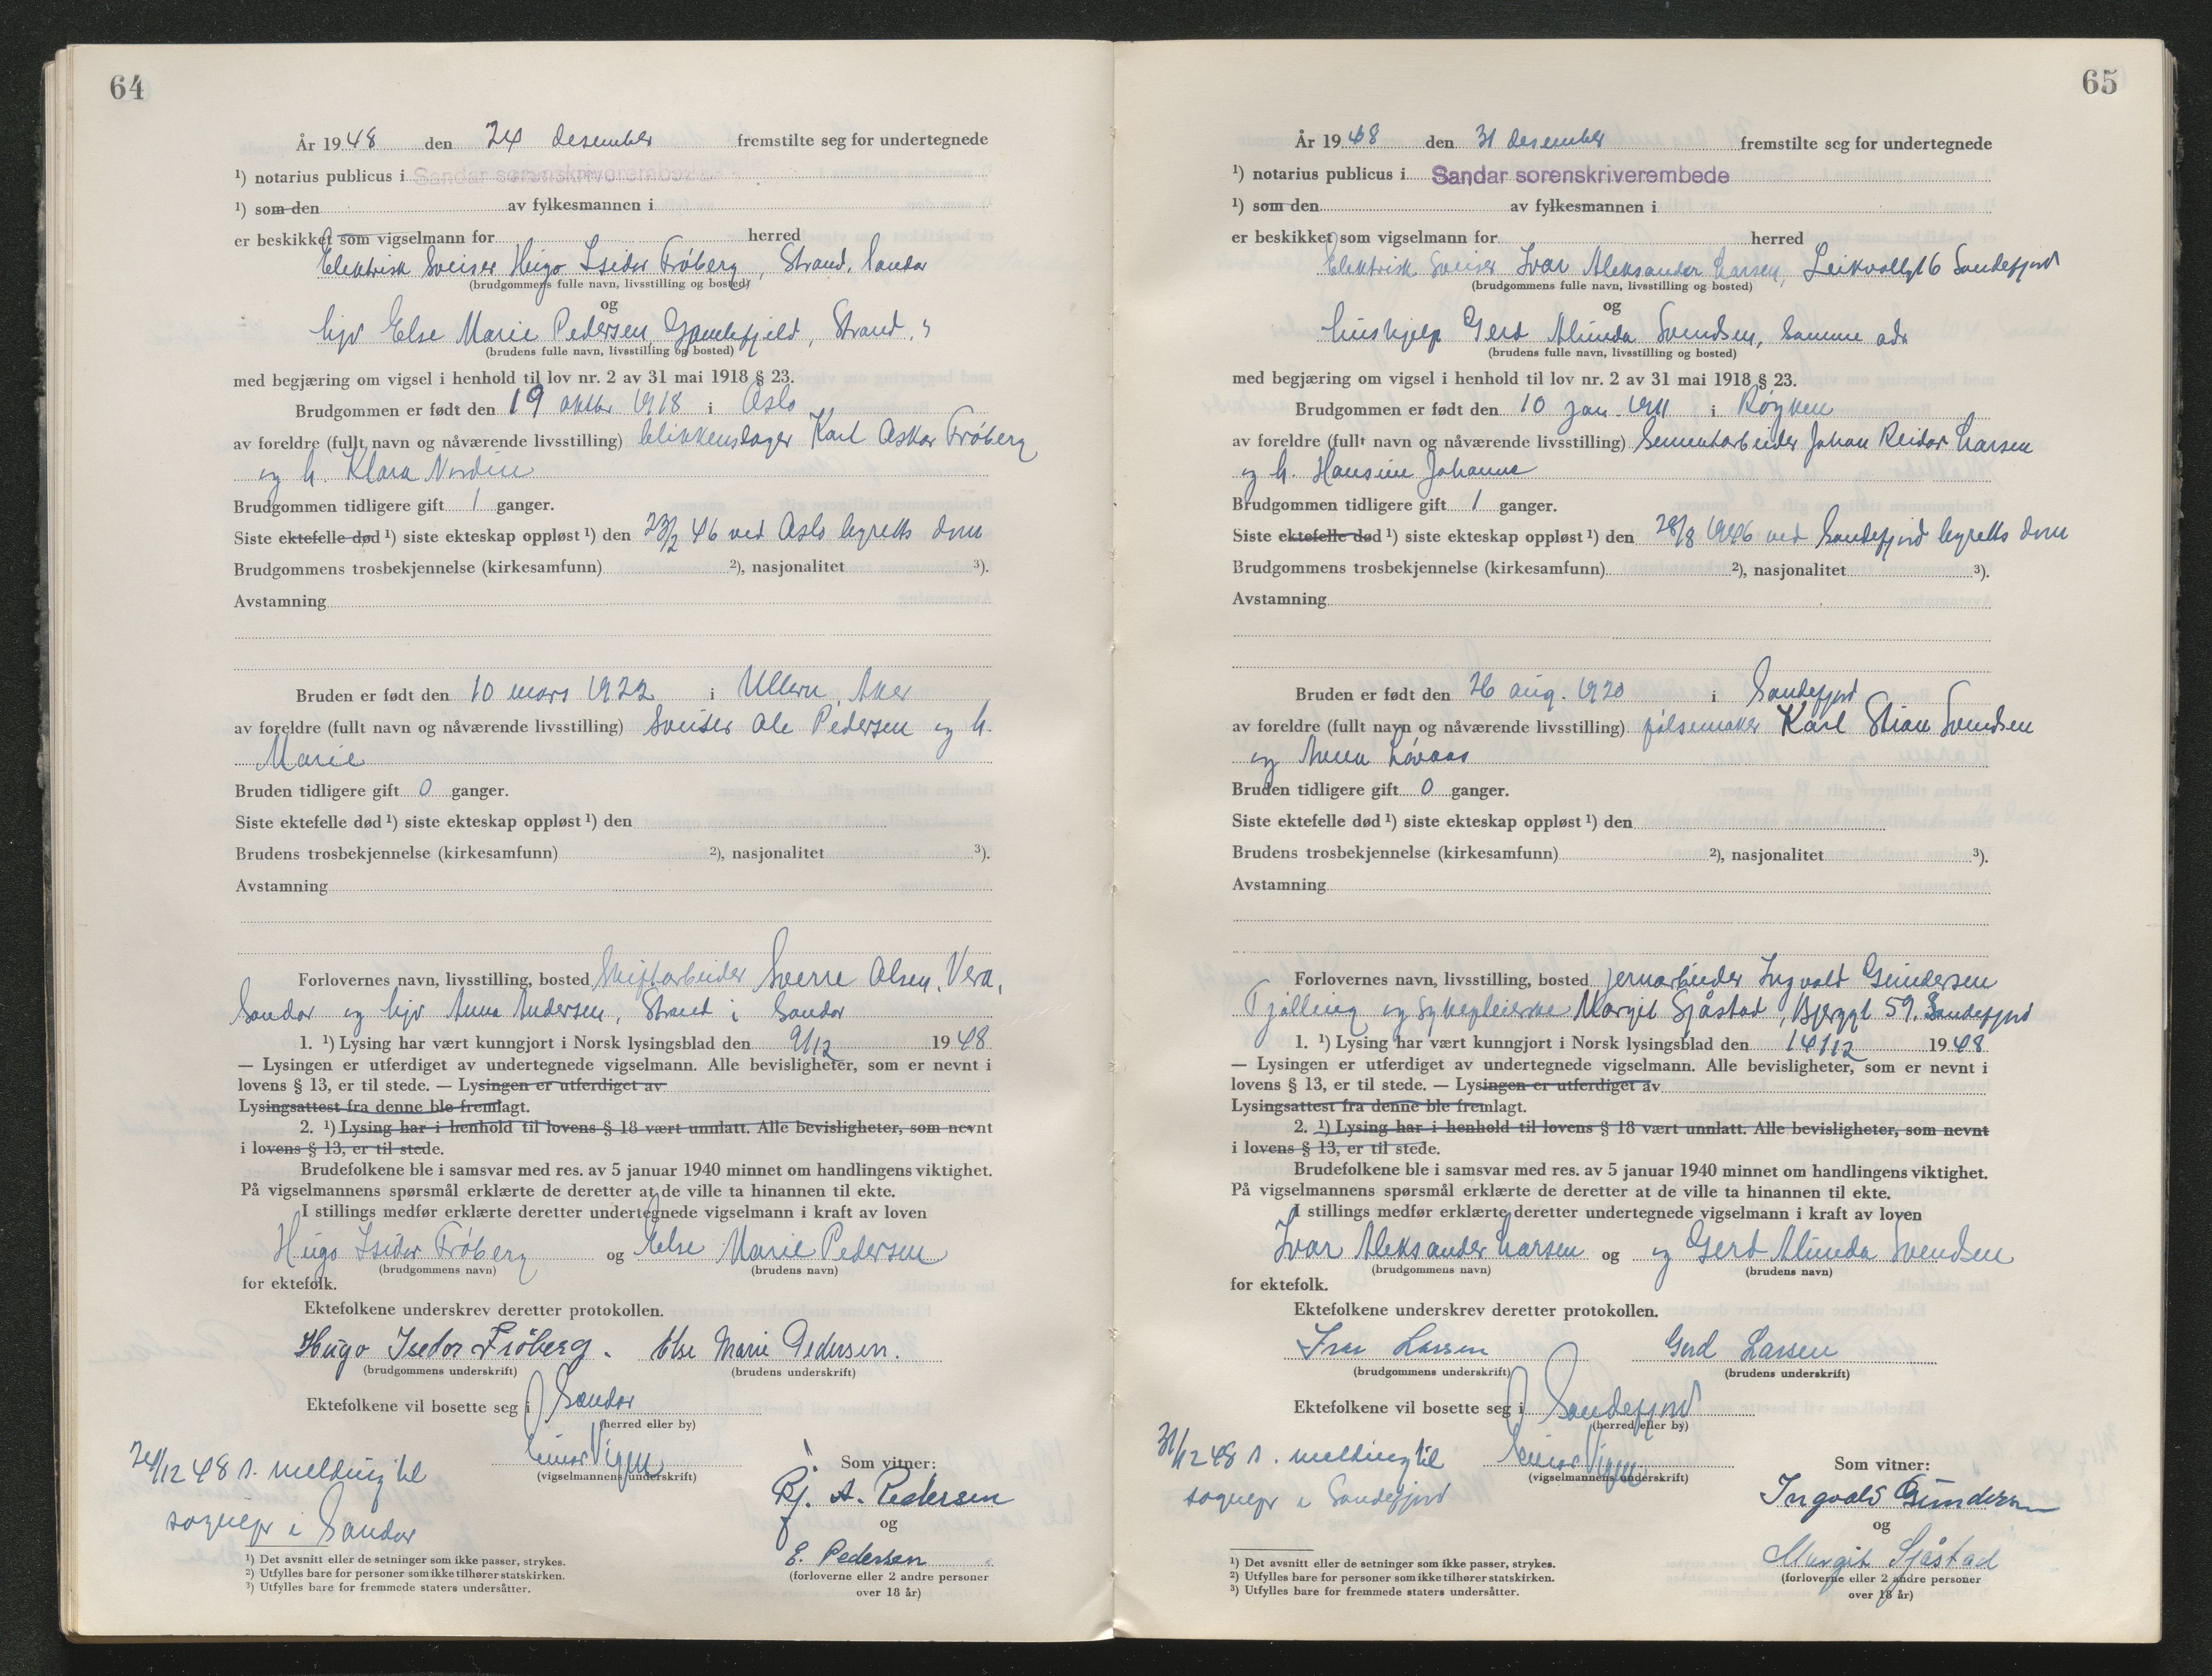 64
År 1948 den 24 desember fremstilte seg for undertegnede
¹) notarius publicus i Sandar sorenskriverembede
¹) som den av fylkesmannen i
er beskikket som vigselmann for herred
Elektrisk Sveiser Hugo Isidor Frøberg, Strand, Sandar
(brudgommens fulle navn, livsstilling og bosted)
og
hjv Else Marie Pedersen, Strand, "
(brudens fulle navn, livsstilling og bosted)
med begjæring om vigsel i henhold til lov nr. 2 av 31 mai 1918 § 23.
Brudgommen er født den 19 oktbr 1918 i Oslo
av foreldre (fullt navn og nåværende livsstilling) blikkenslager Karl Oskar Frøberg
og h. Klara Nordin
Brudgommen tidligere gift 1 ganger.
Siste ektefelle død ¹) siste ekteskap oppløst ¹) den 23/2 46 ved Oslo byretts dom
Brudgommens trosbekjennelse (kirkesamfunn) ²), nasjonalitet ³).
Avstamning
Bruden er født den 10 mars 1922 i Ullern, Aker
av foreldre (fullt navn og nåværende livsstilling) Sveiser Ole Pedersen og h.
Marie
Bruden tidligere gift 0 ganger.
Siste ektefelle død ¹) siste ekteskap oppløst ¹) den
Brudens trosbekjennelse (kirkesamfunn) ²), nasjonalitet ³).
Avstamning
Forlovernes navn, livsstilling, bosted Skiftarbeider Sverre Olsen, Vera,
Sandar og hjv Anna Andersen, Strand i Sandar
1. ¹) Lysing har vært kunngjort i Norsk lysingsblad den 9/12 1948
— Lysingen er utferdiget av undertegnede vigselmann. Alle bevisligheter, som er nevnt i
lovens § 13, er til stede. — Lysingen er utferdiget av
Lysingsattest fra denne ble fremlagt.
2. ¹) Lysing har i henhold til lovens § 18 vært unnlatt. Alle bevisligheter, som nevnt
i lovens § 13, er til stede.
Brudefolkene ble i samsvar med res. av 5 januar 1940 minnet om handlingens viktighet.
På vigselmannens spørsmål erklærte de deretter at de ville ta hinannen til ekte.
I stillings medfør erklærte deretter undertegnede vigselmann i kraft av loven
Hugo Isidor Frøberg og Else Marie Pedersen
(brudgommens navn) (brudens navn)
for ektefolk.
Ektefolkene underskrev deretter protokollen.
Hugo Isedor Frøberg. Else Marie Pedersen.
(brudgommens underskrift) (brudens underskrift)
Ektefolkene vil bosette seg i Sandar
(herred eller by)
Einar Vigen
(vigselmannens underskrift)
24/12 48 s. melding til
sognepr i Sandar
Som vitner:
Bj. A. Pedersen
og
E. Pedersen
(forloverne eller 2 andre personer
over 18 år)
¹) Det avsnitt eller de setninger som ikke passer, strykes.
²) Utfylles bare for personer som ikke tilhører statskirken.
³) Utfylles bare for fremmede staters undersåtter.
65
År 1948 den 31 desember fremstilte seg for undertegnede
¹) notarius publicus i Sandar sorenskriverembede
¹) som den av fylkesmannen i
er beskikket som vigselmann for herred
Elektrisk Sveiser Ivar Aleksander Larsen, Leikvollgt 6 Sandefjord
(brudgommens fulle navn, livsstilling og bosted)
og
hushjelp Gerd Alinda Svendsen, samme adr
(brudens fulle navn, livsstilling og bosted)
med begjæring om vigsel i henhold til lov nr. 2 av 31 mai 1918 § 23.
Brudgommen er født den 10 jan. 1911 i Røyken
av foreldre (fullt navn og nåværende livsstilling) Sementarbeider Johan Reidar Larsen
og h. Hansine Johanne
Brudgommen tidligere gift 1 ganger.
Siste ektefelle død ¹) siste ekteskap oppløst ¹) den 28/8 1946 ved Sandefjord byretts dom
Brudgommens trosbekjennelse (kirkesamfunn) ²), nasjonalitet ³).
Avstamning
Bruden er født den 26 aug. 1920 i Sandefjord
av foreldre (fullt navn og nåværende livsstilling) pølsemaker Karl Stian Svendsen
og Anna Løvaas
Bruden tidligere gift 0 ganger.
Siste ektefelle død ¹) siste ekteskap oppløst ¹) den
Brudens trosbekjennelse (kirkesamfunn) ²), nasjonalitet ³).
Avstamning
Forlovernes navn, livsstilling, bosted jernarbeider Ingvald Gundersen
Tjølling og sykepleierske Margit Sjåstad, Bjerggt 59. Sandefjord
1. ¹) Lysing har vært kunngjort i Norsk lysingsblad den 14/12 1948
— Lysingen er utferdiget av undertegnede vigselmann. Alle bevisligheter, som er nevnt i
lovens § 13, er til stede. — Lysingen er utferdiget av
Lysingsattest fra denne ble fremlagt.
2. ¹) Lysing har i henhold til lovens § 18 vært unnlatt. Alle bevisligheter, som nevnt
i lovens § 13, er til stede.
Brudefolkene ble i samsvar med res. av 5 januar 1940 minnet om handlingens viktighet.
På vigselmannens spørsmål erklærte de deretter at de ville ta hinannen til ekte.
I stillings medfør erklærte deretter undertegnede vigselmann i kraft av loven
Ivar Aleksander Larsen og og Gerd Alinda Svendsen
(brudgommens navn) (brudens navn)
for ektefolk.
Ektefolkene underskrev deretter protokollen.
Ivar Larsen Gerd Larsen
(brudgommens underskrift) (brudens underskrift)
Ektefolkene vil bosette seg i Sandefjord
(herred eller by)
Einar Vigen
(vigselmannens underskrift)
31/12 48 s. melding til
sognepr i Sandefjord
Som vitner:
Ingvald Gundersen
og
Margit Sjåstad
(forloverne eller 2 andre personer
over 18 år)
¹) Det avsnitt eller de setninger som ikke passer, strykes.
²) Utfylles bare for personer som ikke tilhører statskirken.
³) Utfylles bare for fremmede staters undersåtter.